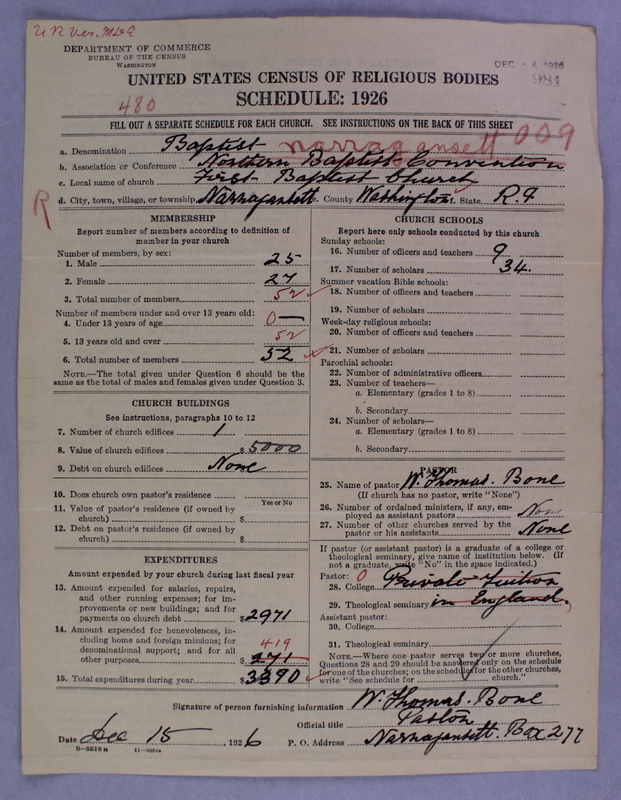 U R Ver. MLE
DEPARTMENT OF COMMERCE
BUREAU OF THE CENSUS
WASHINGTON
DEC 1926
981
UNITED STATES CENSUS OF RELIGIOUS BODIES
SCHEDULE: 1926
480
FILL OUT A SEPARATE SCHEDULE FOR EACH CHURCH. SEE INSTRUCTIONS ON THE BACK OF THIS SHEET
narragansett 009
a. Denomination Baptist
b. Association or Conference Northern Baptist Convention
c. Local name of church First Baptist Church
d. City, town, village, or township Narragansett e. County Washington f. State R.I
R
MEMBERSHIP
Report number of members according to definition of
member in your church
Number of members, by sex:
1. Male 25
2. Female 27
3. Total number of members 52
Number of members under and over 13 years old:
4. Under 13 years of age 0—
5. 13 years old and over 52
6. Total number of members 52
NOTE.—The total given under Question 6 should be the
same as the total of males and females given under Question 3.
CHURCH BUILDINGS
See instructions, paragraphs 10 to 12
7. Number of church edifices 1
8. Value of church edifices $5000
9. Debt on church edifices None
10. Does church own pastor's residence
Yes or No
11. Value of pastor's residence (if owned by
church) $
12. Debt on pastor's residence (if owned by
church) $
EXPENDITURES
Amount expended by your church during last fiscal year
13. Amount expended for salaries, repairs,
and other running expenses; for im-
provements or new buildings; and for
payments on church debt $2971
14. Amount expended for benevolences, in-
cluding home and foreign missions; for
denominational support; and for all
419
other purposes $271
15. Total expenditures during year $3390
CHURCH SCHOOLS
Report here only schools conducted by this church
Sunday schools:
16. Number of officers and teachers 9
17. Number of scholars 34.
Summer vacation Bible schools:
18. Number of officers and teachers
19. Number of scholars
Week-day religious schools:
20. Number of officers and teachers
21. Number of scholars
Parochial schools:
22. Number of administrative officers
23. Number of teachers—
a. Elementary (grades 1 to 8)
b. Secondary
24. Number of scholars—
a. Elementary (grades 1 to 8)
b. Secondary
PASTOR
25. Name of pastor W. Thomas. Bone
(If church has no pastor, write "None")
26. Number of ordained ministers, if any, em-
ployed as assistant pastors None
27. Number of other churches served by the
pastor or his assistants None
If pastor (or assistant pastor) is a graduate of a college or
theological seminary, give name of institution below. (If
not a graduate, write "No" in the space indicated.)
Pastor: 0
28. College Private Tuition
29. Theological seminary in England.
Assistant pastor:
30. College
31. Theological seminary
NOTE.—Where one pastor serves two or more churches,
Questions 28 and 29 should be answered only on the schedule
for one of the churches; on the schedules for the other churches,
write "See schedule for church."
Signature of person furnishing information W. Thomas. Bone
Official title Pastor
Date Dec 15, 1926 P. O. Address Narragansett. Box 277
8—5518 a 11—9254a